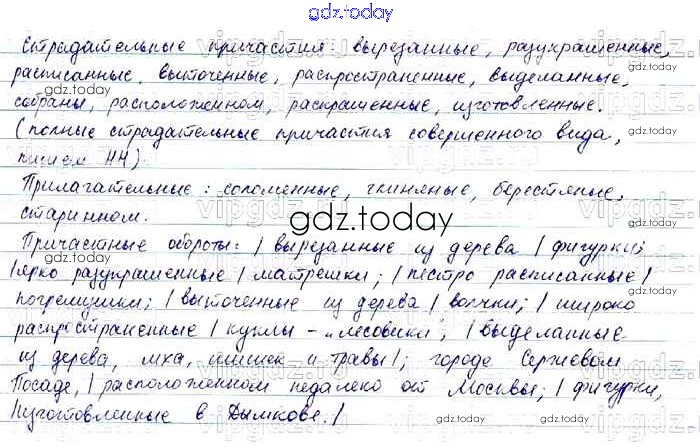 gdz.today
Страдательные причастия: вырезанные, разукрашенные,
расписанные, выточенные, распространенные, выделанные,
собраны, расположенном, раскрашенные, изготовленные.
gdz.today
(полные страдательные причастия совершенного вида,
пишем НН)
Прилагательные: соломенные, глиняные, берестяные,
старинном.
gdz.today
Причастные обороты: / вырезанные из дерева / фигурки;
/ярко разукрашенные / матрешки; / пестро расписанные /
погремушки; / выточенные из дерева / волчки; / широко
распространенные / куклы - „лесовики"; / выделанные
из дерева, мха, шишек и травы/; городе Сергиевом
Посаде, / расположенном недалеко от Москвы; / фигурки,
/изготовленные в Дымкове. /
gdz.today